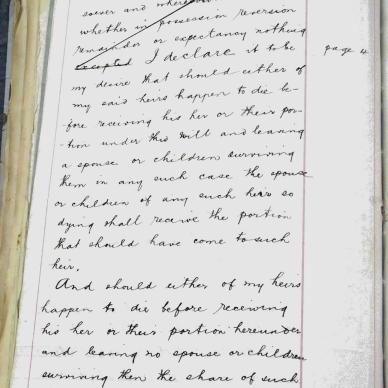 soever and wheresoever
whether in possession reversion
remainder or expectancy nothing
excepted I declare it to be
page 4
my desire that should either of
my said heirs happen to die be-
fore receiving his her or their por-
tion under this will and leaving
a spouse or children surviving
them in any such case the spouse
or children of any such heir so
dying shall receive the portion
that should have come to such
heir.
And should either of my heirs
happen to die before receiving
his her or their portion hereunder
and leaving no spouse or children
surviving then the share of such